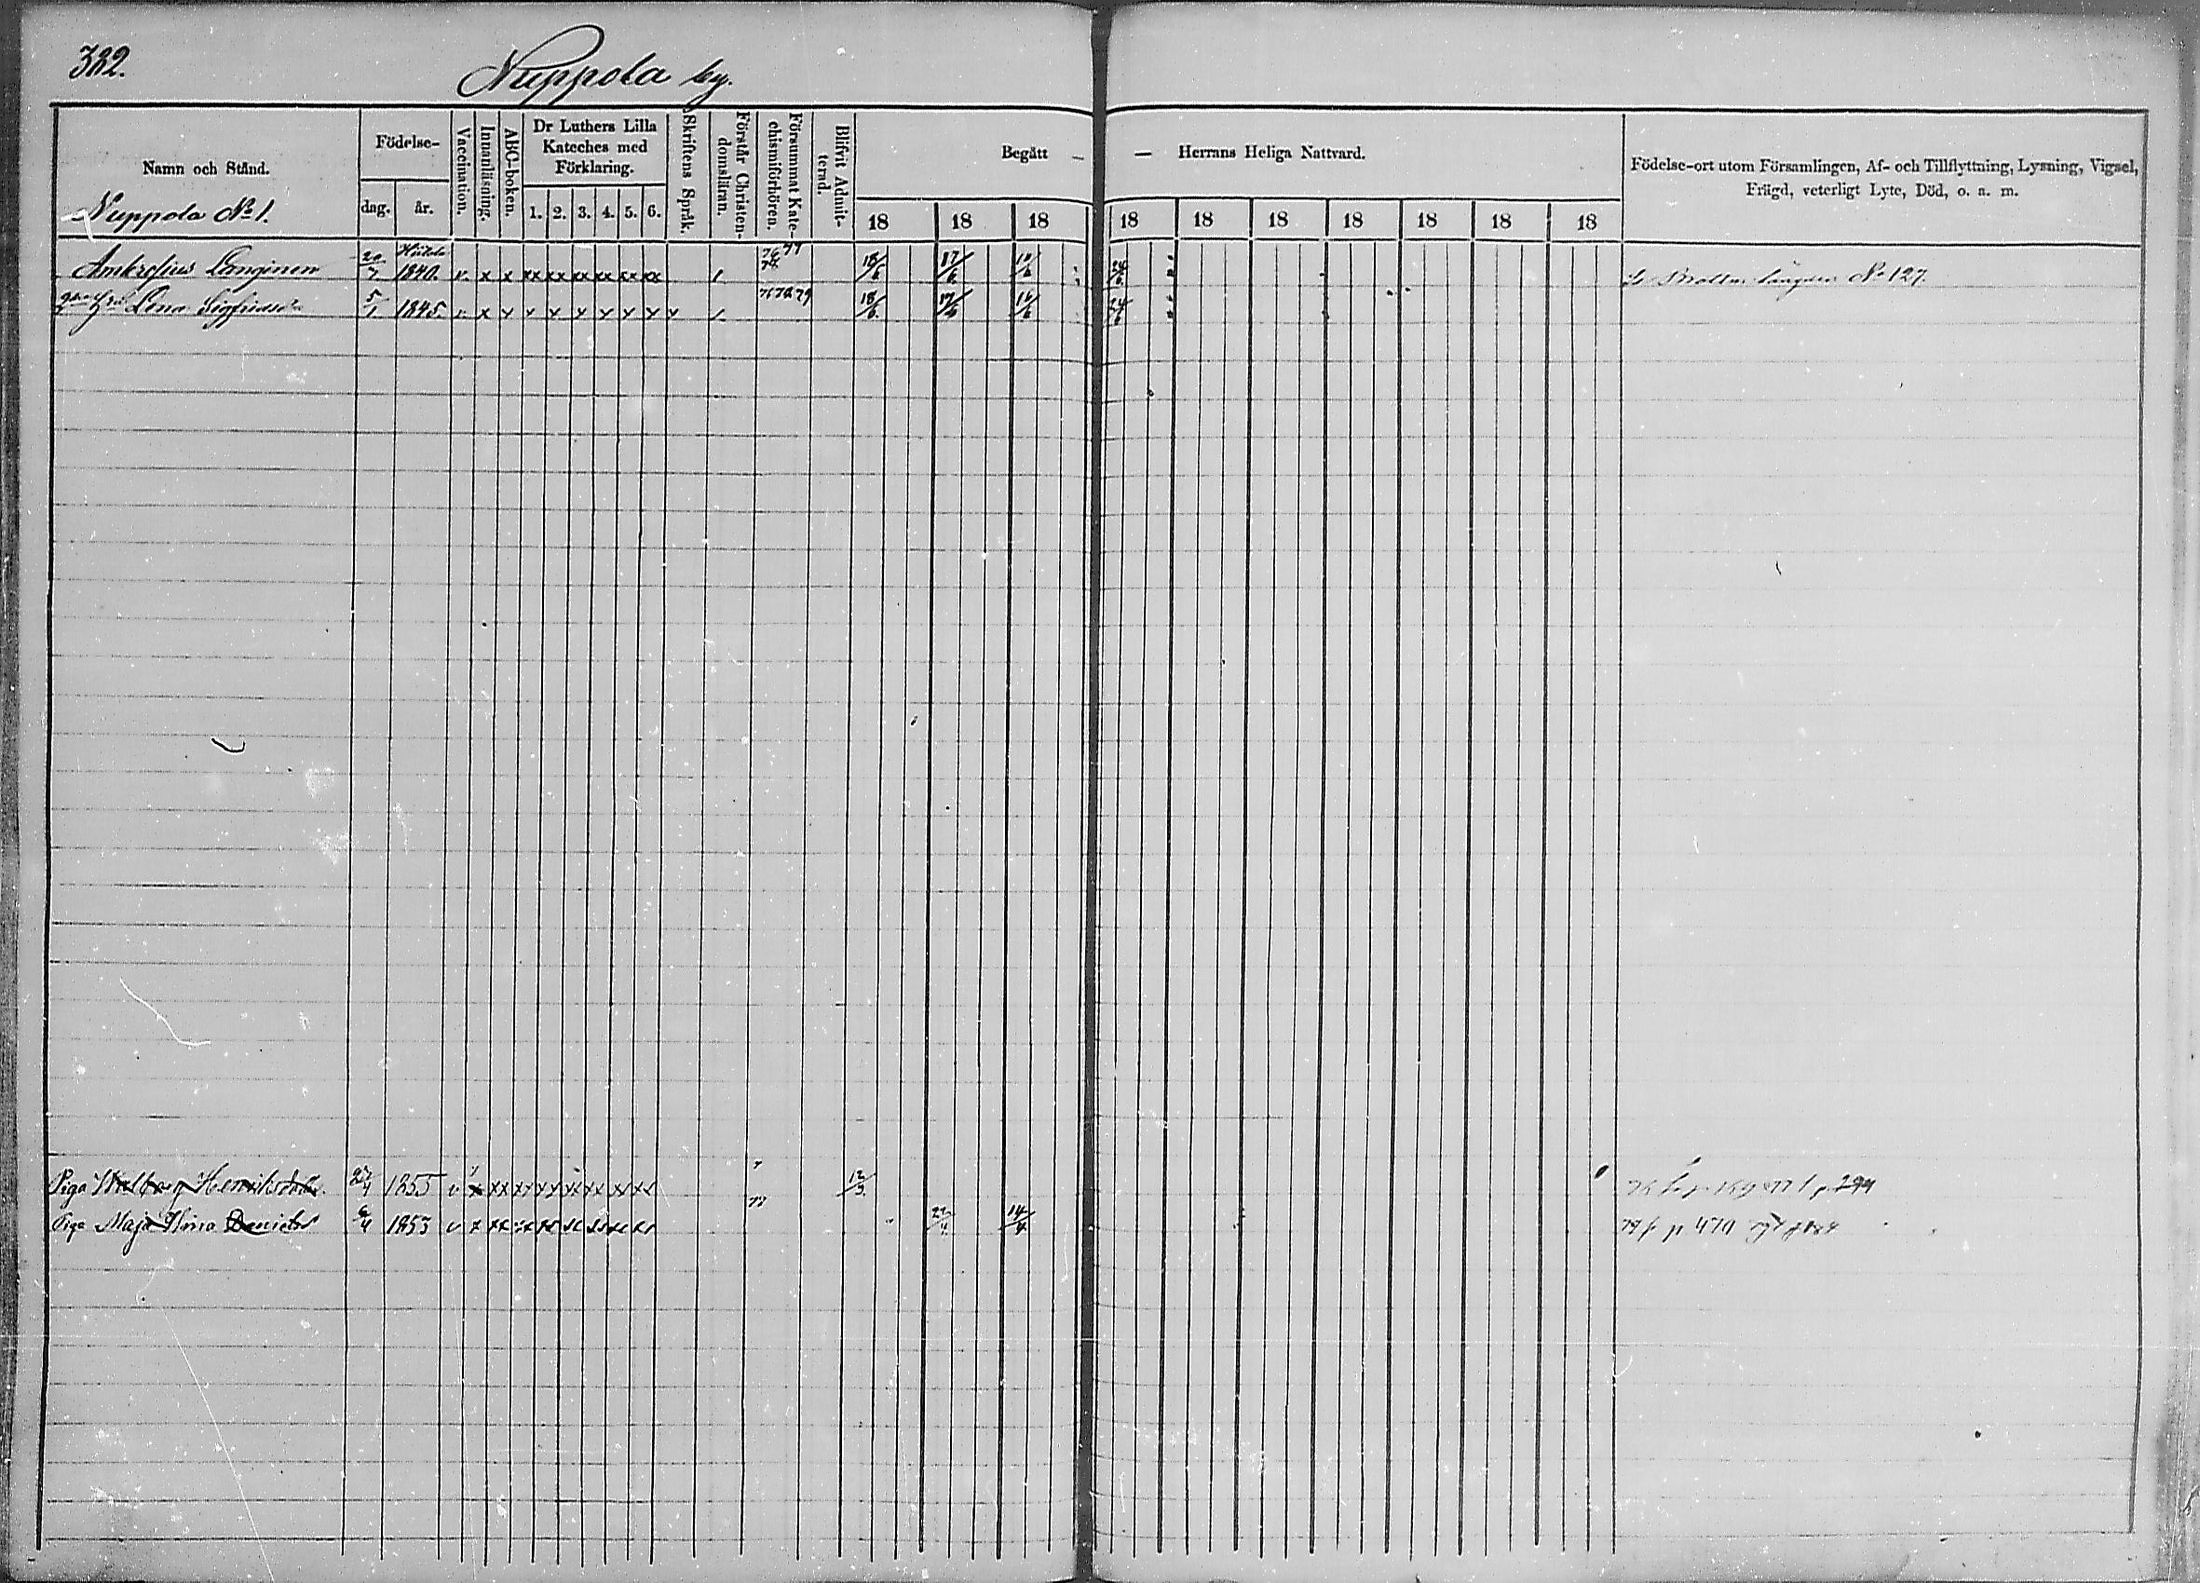 382.
Nuppola by.
Namn och Stånd.
Födelse-
dag. år.
Vaccination.
Innanläsning.
ABC-boken.
Dr Luthers Lilla
Kateches med
Förklaring.
1. 2. 3. 4. 5. 6.
Skriftens Språk.
Förstår Christen-
domsläran.
Försummat Kate-
chismiförhören.
Blifvit Admit-
terad.
Begått — — Herrans Heliga Nattvard.
18 18 18 18 18 18 18 18 18 18
Födelse-ort utom Församlingen, Af- och Tillflyttning, Lysning, Vigsel,
Frägd, veterligt Lyte, Död, o. a. m.
Nuppola No 1.
Ambrosius Langinen 20/7 1840. v. x x xx xx xx xx xx xx / 18/6 17/6 24/6 No 127.
Lena Sigfridsdr 5/1 1845. v. x x x x x x x x x / 76 78 79 18/6 17/6 16/6 24/6
Piga Walborg Henriksdotr. 1855 v x xx xx xx xx xx xx xx 12/3
Piga Maja Stina Danielsd 6/4 1853 v x xx 77 22/4 14/4 79 f p 470